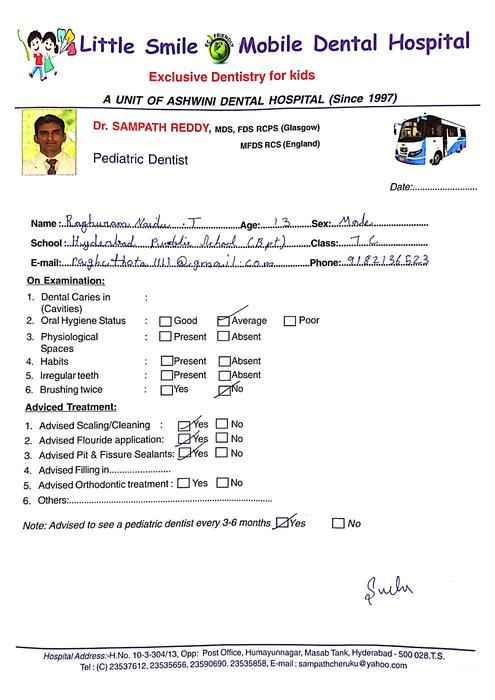 Little Smile ECO FRIENDLY Mobile Dental Hospital
Exclusive Dentistry for kids
A UNIT OF ASHWINI DENTAL HOSPITAL (Since 1997)
Dr. SAMPATH REDDY, MDS, FDS RCPS (Glasgow)
MFDS RCS (England)
Pediatric Dentist
Date:
Name: Raghuram Naidu . T Age: 13 Sex: Male
School: Hyderabad Public School (Bpt) Class: 7 C
E-mail: raghuthota1111@gmail.com Phone: 9182136523
On Examination:
1. Dental Caries in :
(Cavities)
2. Oral Hygiene Status : Good Average Poor
3. Physiological : Present Absent
Spaces
4. Habits : Present Absent
5. Irregular teeth : Present Absent
6. Brushing twice : Yes No
Adviced Treatment:
1. Advised Scaling/Cleaning : Yes No
2. Advised Flouride application: Yes No
3. Advised Pit & Fissure Sealants: Yes No
4. Advised Filling in
5. Advised Orthodontic treatment : Yes No
6. Others:
Note: Advised to see a pediatric dentist every 3-6 months Yes No
Hospital Address:-H.No. 10-3-304/13, Opp: Post Office, Humayunnagar, Masab Tank, Hyderabad - 500 028.T.S.
Tel : (C) 23537612, 23535656, 23590690. 23535858, E-mail : sampathcheruku@yahoo.com